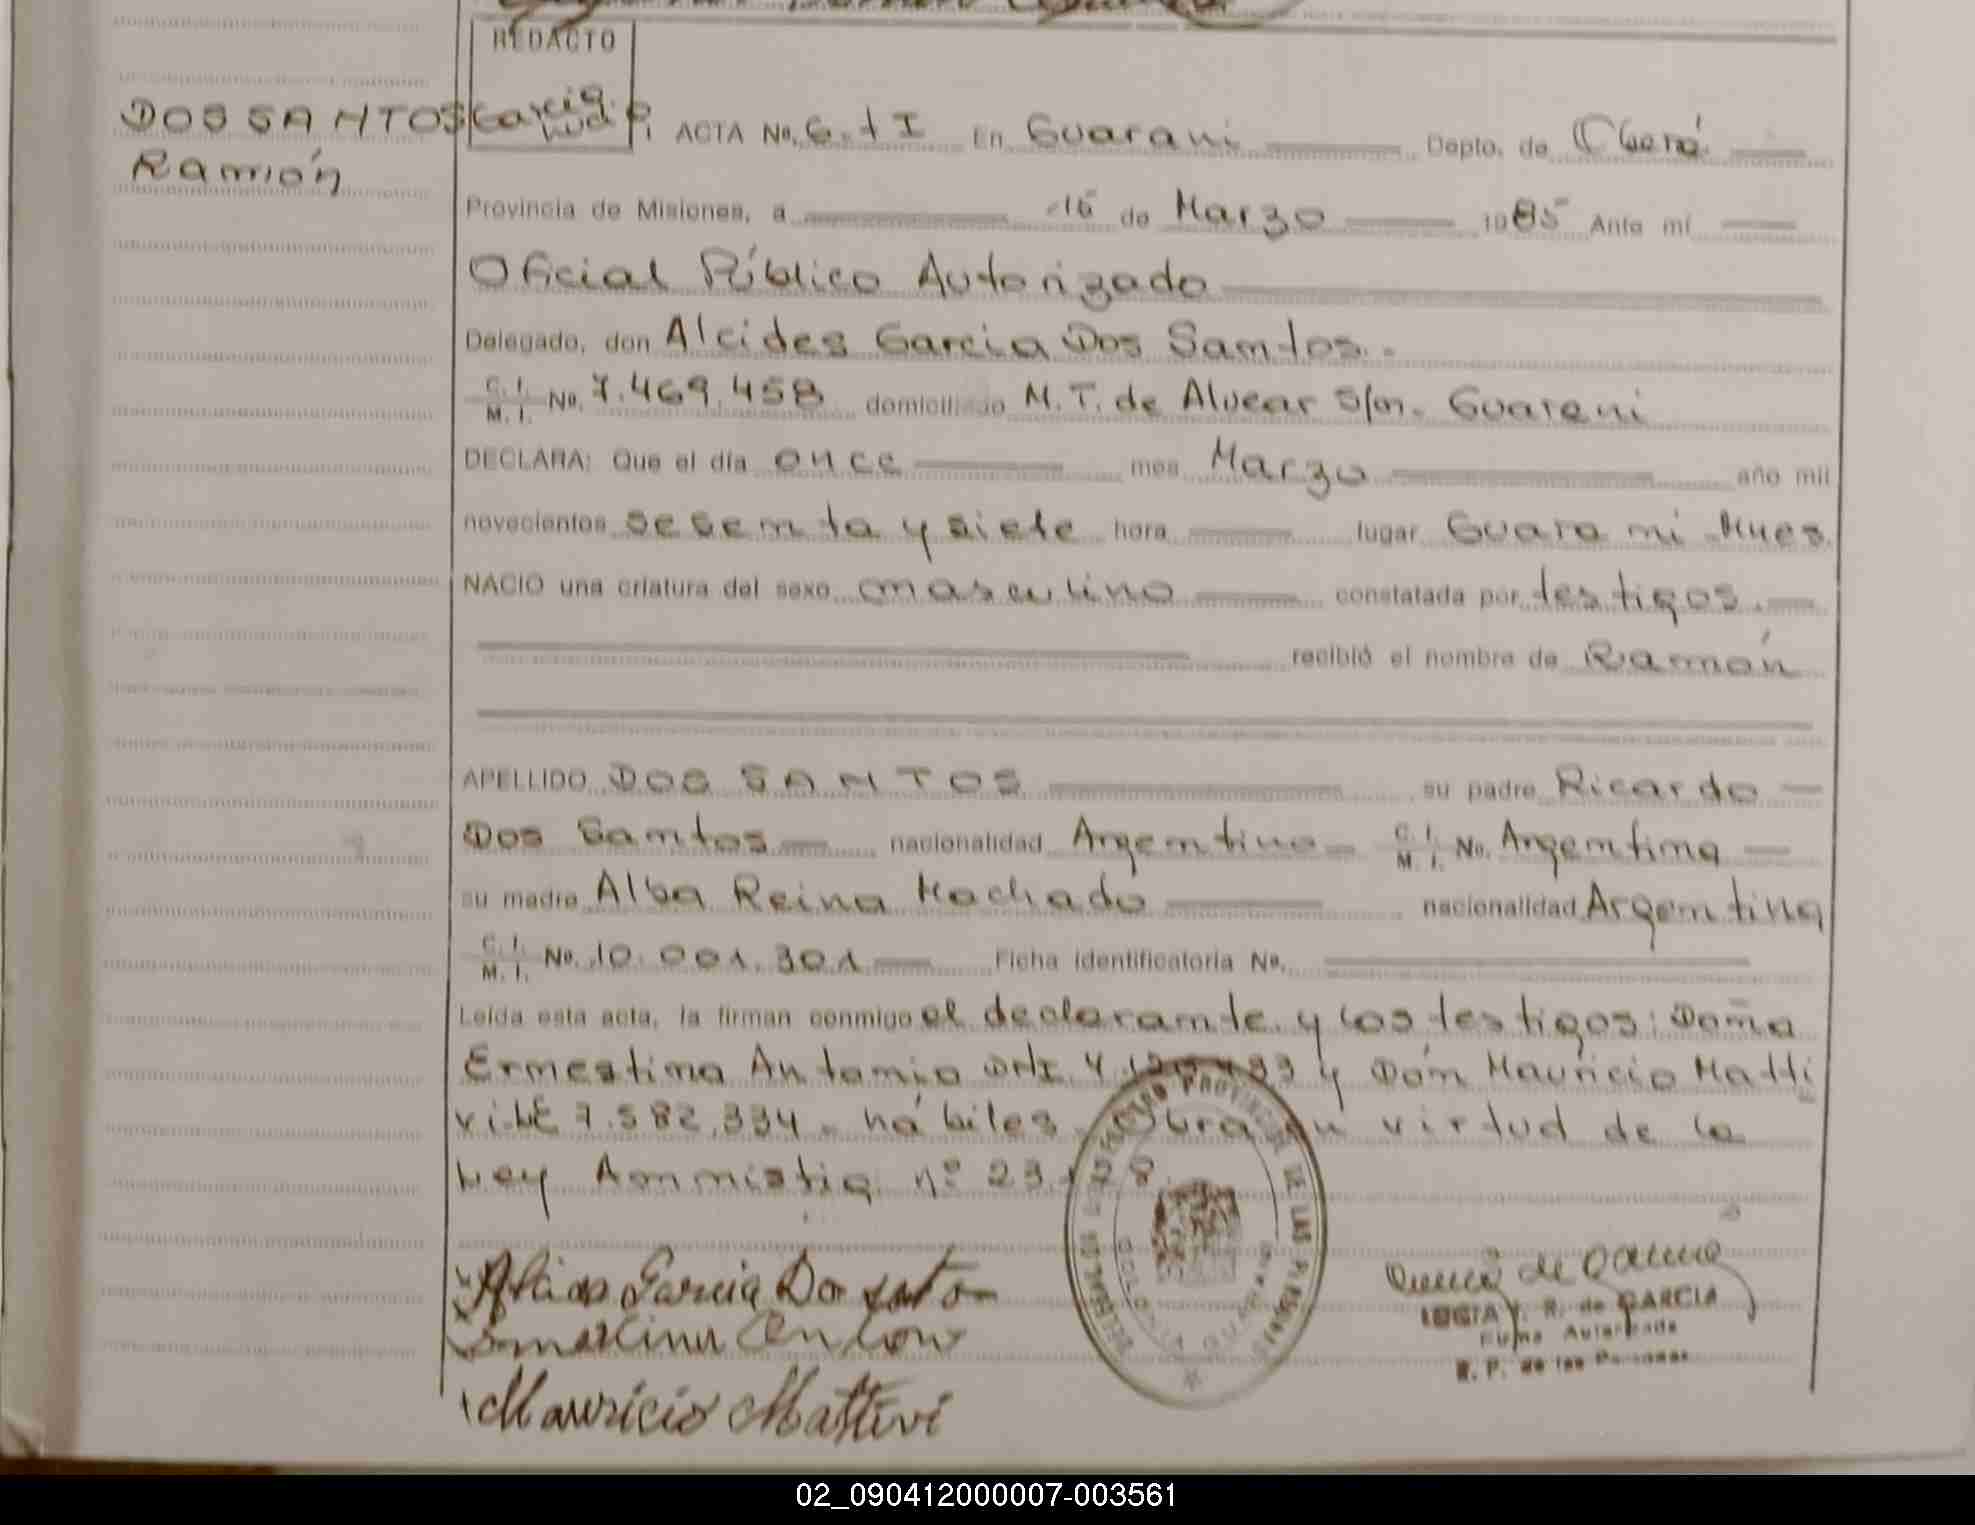 REDACTO
DOS SANTOS
Ramón
ACTA No. 6. t I En Guarani Depto. de Oberá
Provincia de Misiones, a 15 de Marzo 1985 Ante mí
Oficial Público Autorizado
Delegado, don Alcides Garcia Dos Santos.-
C. I. M. I. No. 7.469.458 domiciliado M. T. de Alvear S/n. Guarani
DECLARA: Que el día once mes Marzo año mil
novecientos sesenta y siete hora lugar Guarani Mnes
NACIO una criatura del sexo masculino constatada por testigos.
recibió el nombre de Ramón
APELLIDO DOS SANTOS su padre Ricardo
Dos Santos nacionalidad Argentino C. I. M. I. No. Argentina
su madre Alba Reina Machado nacionalidad Argentina
C. I. M. I. No. 10.001.301 Ficha identificatoria No.
Leída esta acta, la firman conmigo el declarante y los testigos: Doña
Ernestina Antonio DNI 4. y Dón Mauricio Matti
vi LE 7.582.334. hábiles. Obra en virtud de la
Ley Amnistia nº 23.
Garcia Dos
Mauricio Mattivi
PROVINCIAL DE LAS PERSONAS
GUARANI
R. de GARCIA
Firma Autorizada
R. P. de las Personas
02_090412000007-003561